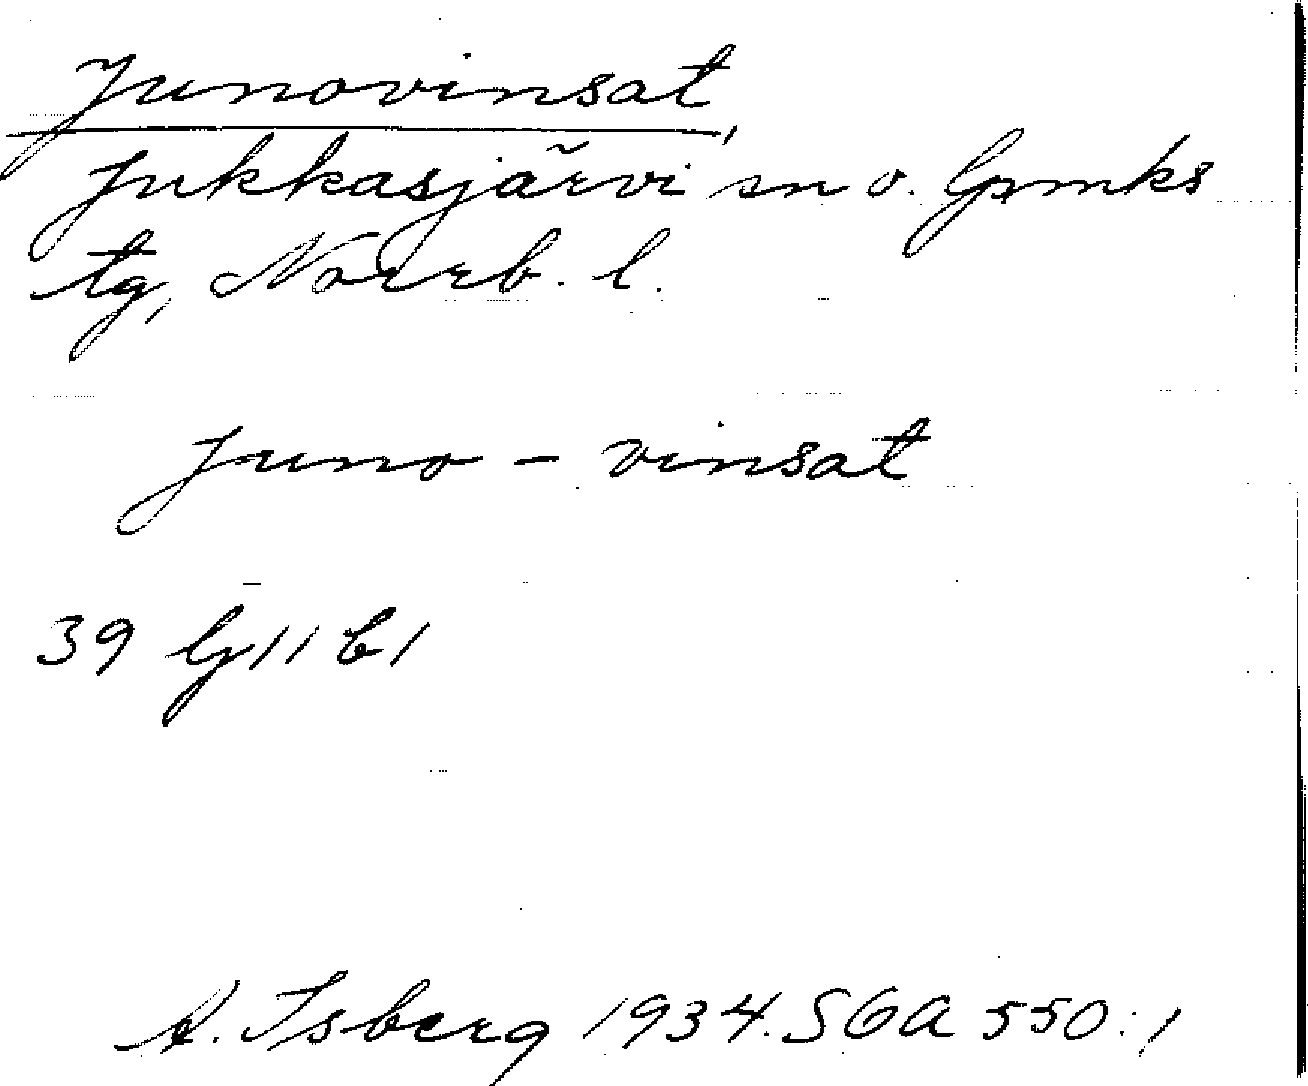 Junovinsat,
Jukkasjärvi sn o. lpmks
tg, Norrb. l.
Juno - vinsat
39 G11 b1
A. Isberg 1934. SOA 550:1